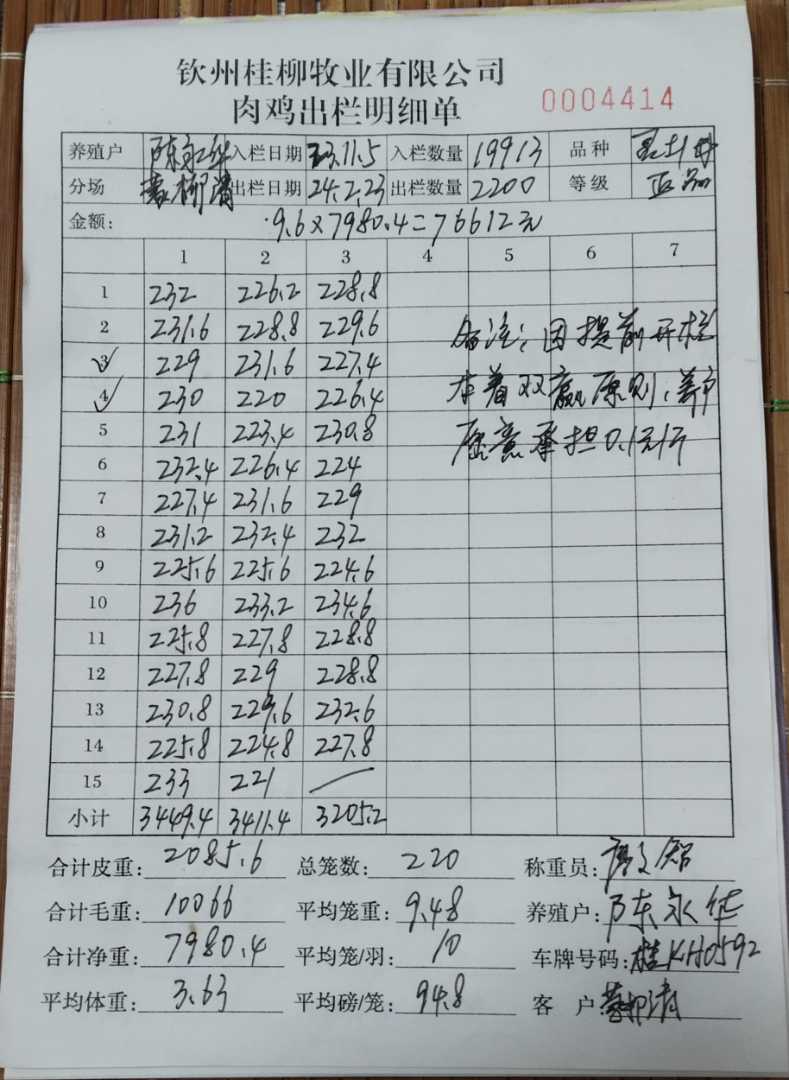 钦州桂柳牧业有限公司
肉鸡出栏明细单 0004414
养殖户 陈永华 入栏日期 23.11.5 入栏数量 19913 品种
分场 出栏日期 24.2.23 出栏数量 2200 等级 正品
金额: 9.6×7980.4=76612元
1 2 3 4 5 6 7
1 232 226.2 228.8
2 231.6 228.8 229.6
3 229 231.6 227.4
4 230 220 226.4
5 231 223.4 230.8
6 232.4 226.4 224
7 227.4 231.6 229
8 231.2 232.4 232
9 225.6 225.6 224.6
10 236 233.2 234.6
11 225.8 227.8 228.8
12 227.8 229 228.8
13 230.8 229.6 232.6
14 225.8 224.8 227.8
15 233 221 —
小计 3449.4 3411.4 3205.2
备注:因提前开栏
本着双赢原则,养户
愿意承担0.1元/斤
合计皮重: 2085.6 总笼数: 220 称重员:
合计毛重: 10066 平均笼重: 9.48 养殖户: 陈永华
合计净重: 7980.4 平均笼/羽: 10 车牌号码: 桂KH0592
平均体重: 3.63 平均磅/笼: 94.8 客户